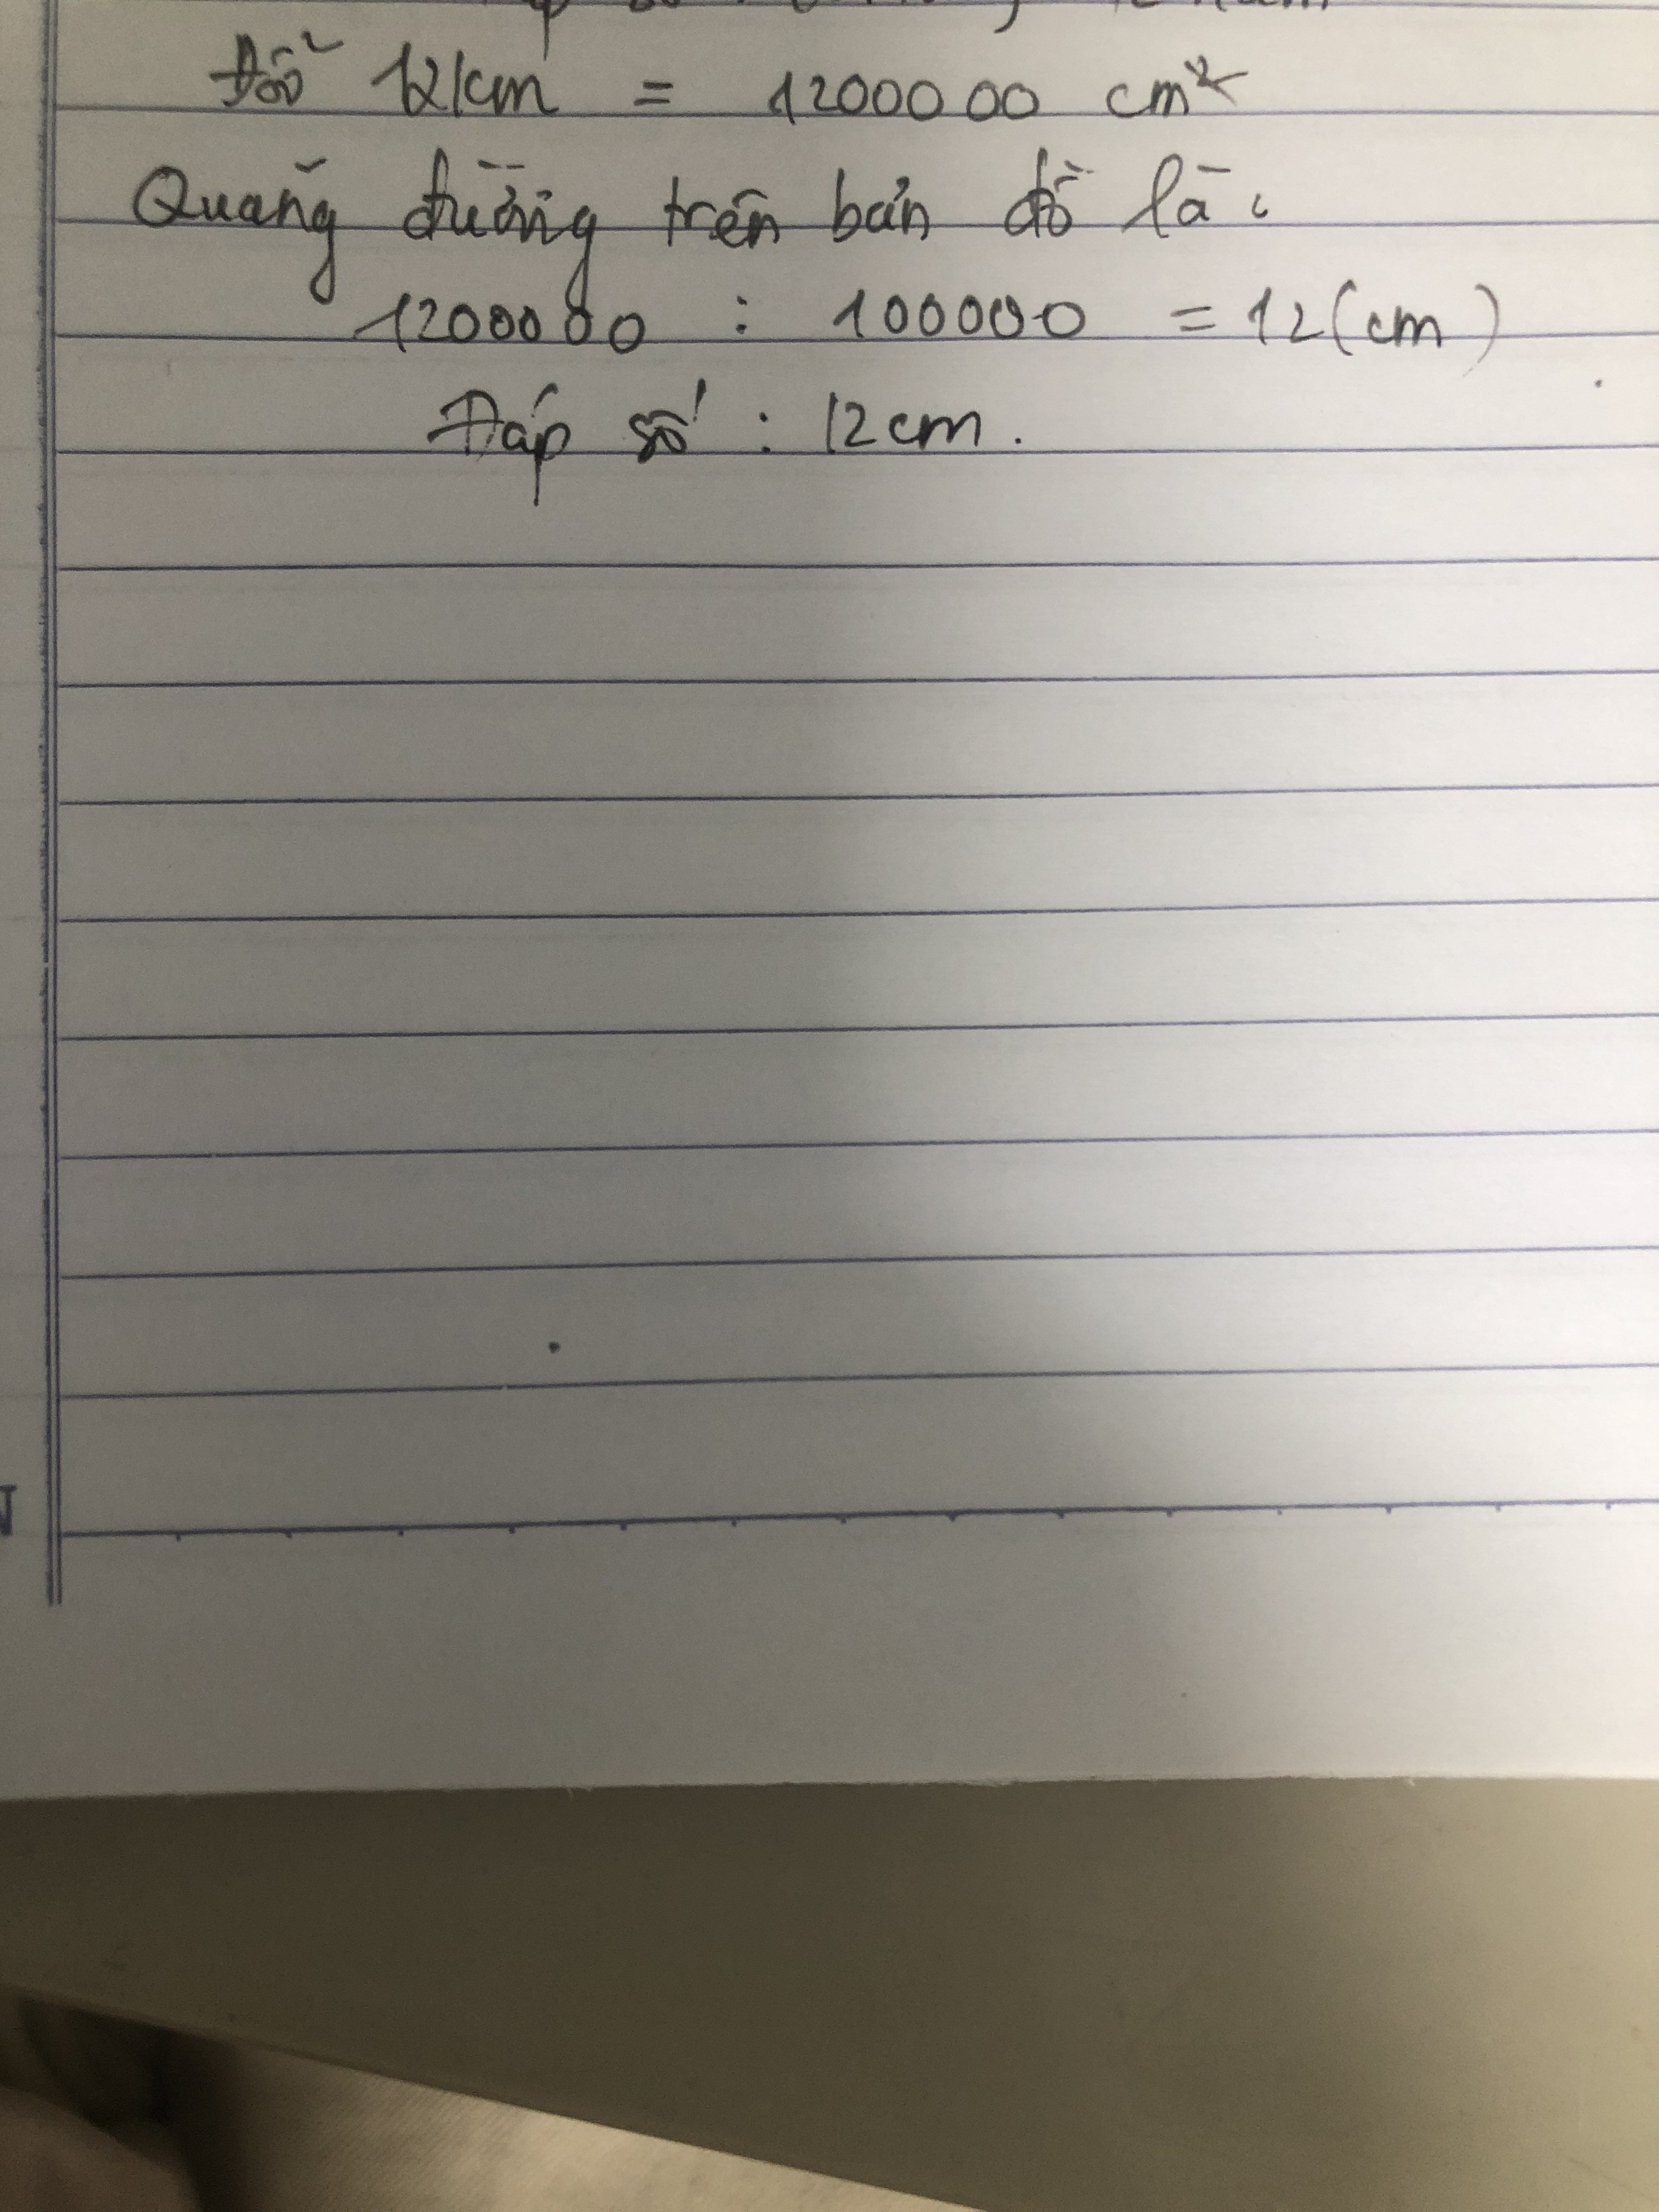 Đổi 12km = 1200000 cm
Quãng đường trên bản đồ là:
1200000 : 100000 = 12 (cm)
Đáp số : 12cm.
N